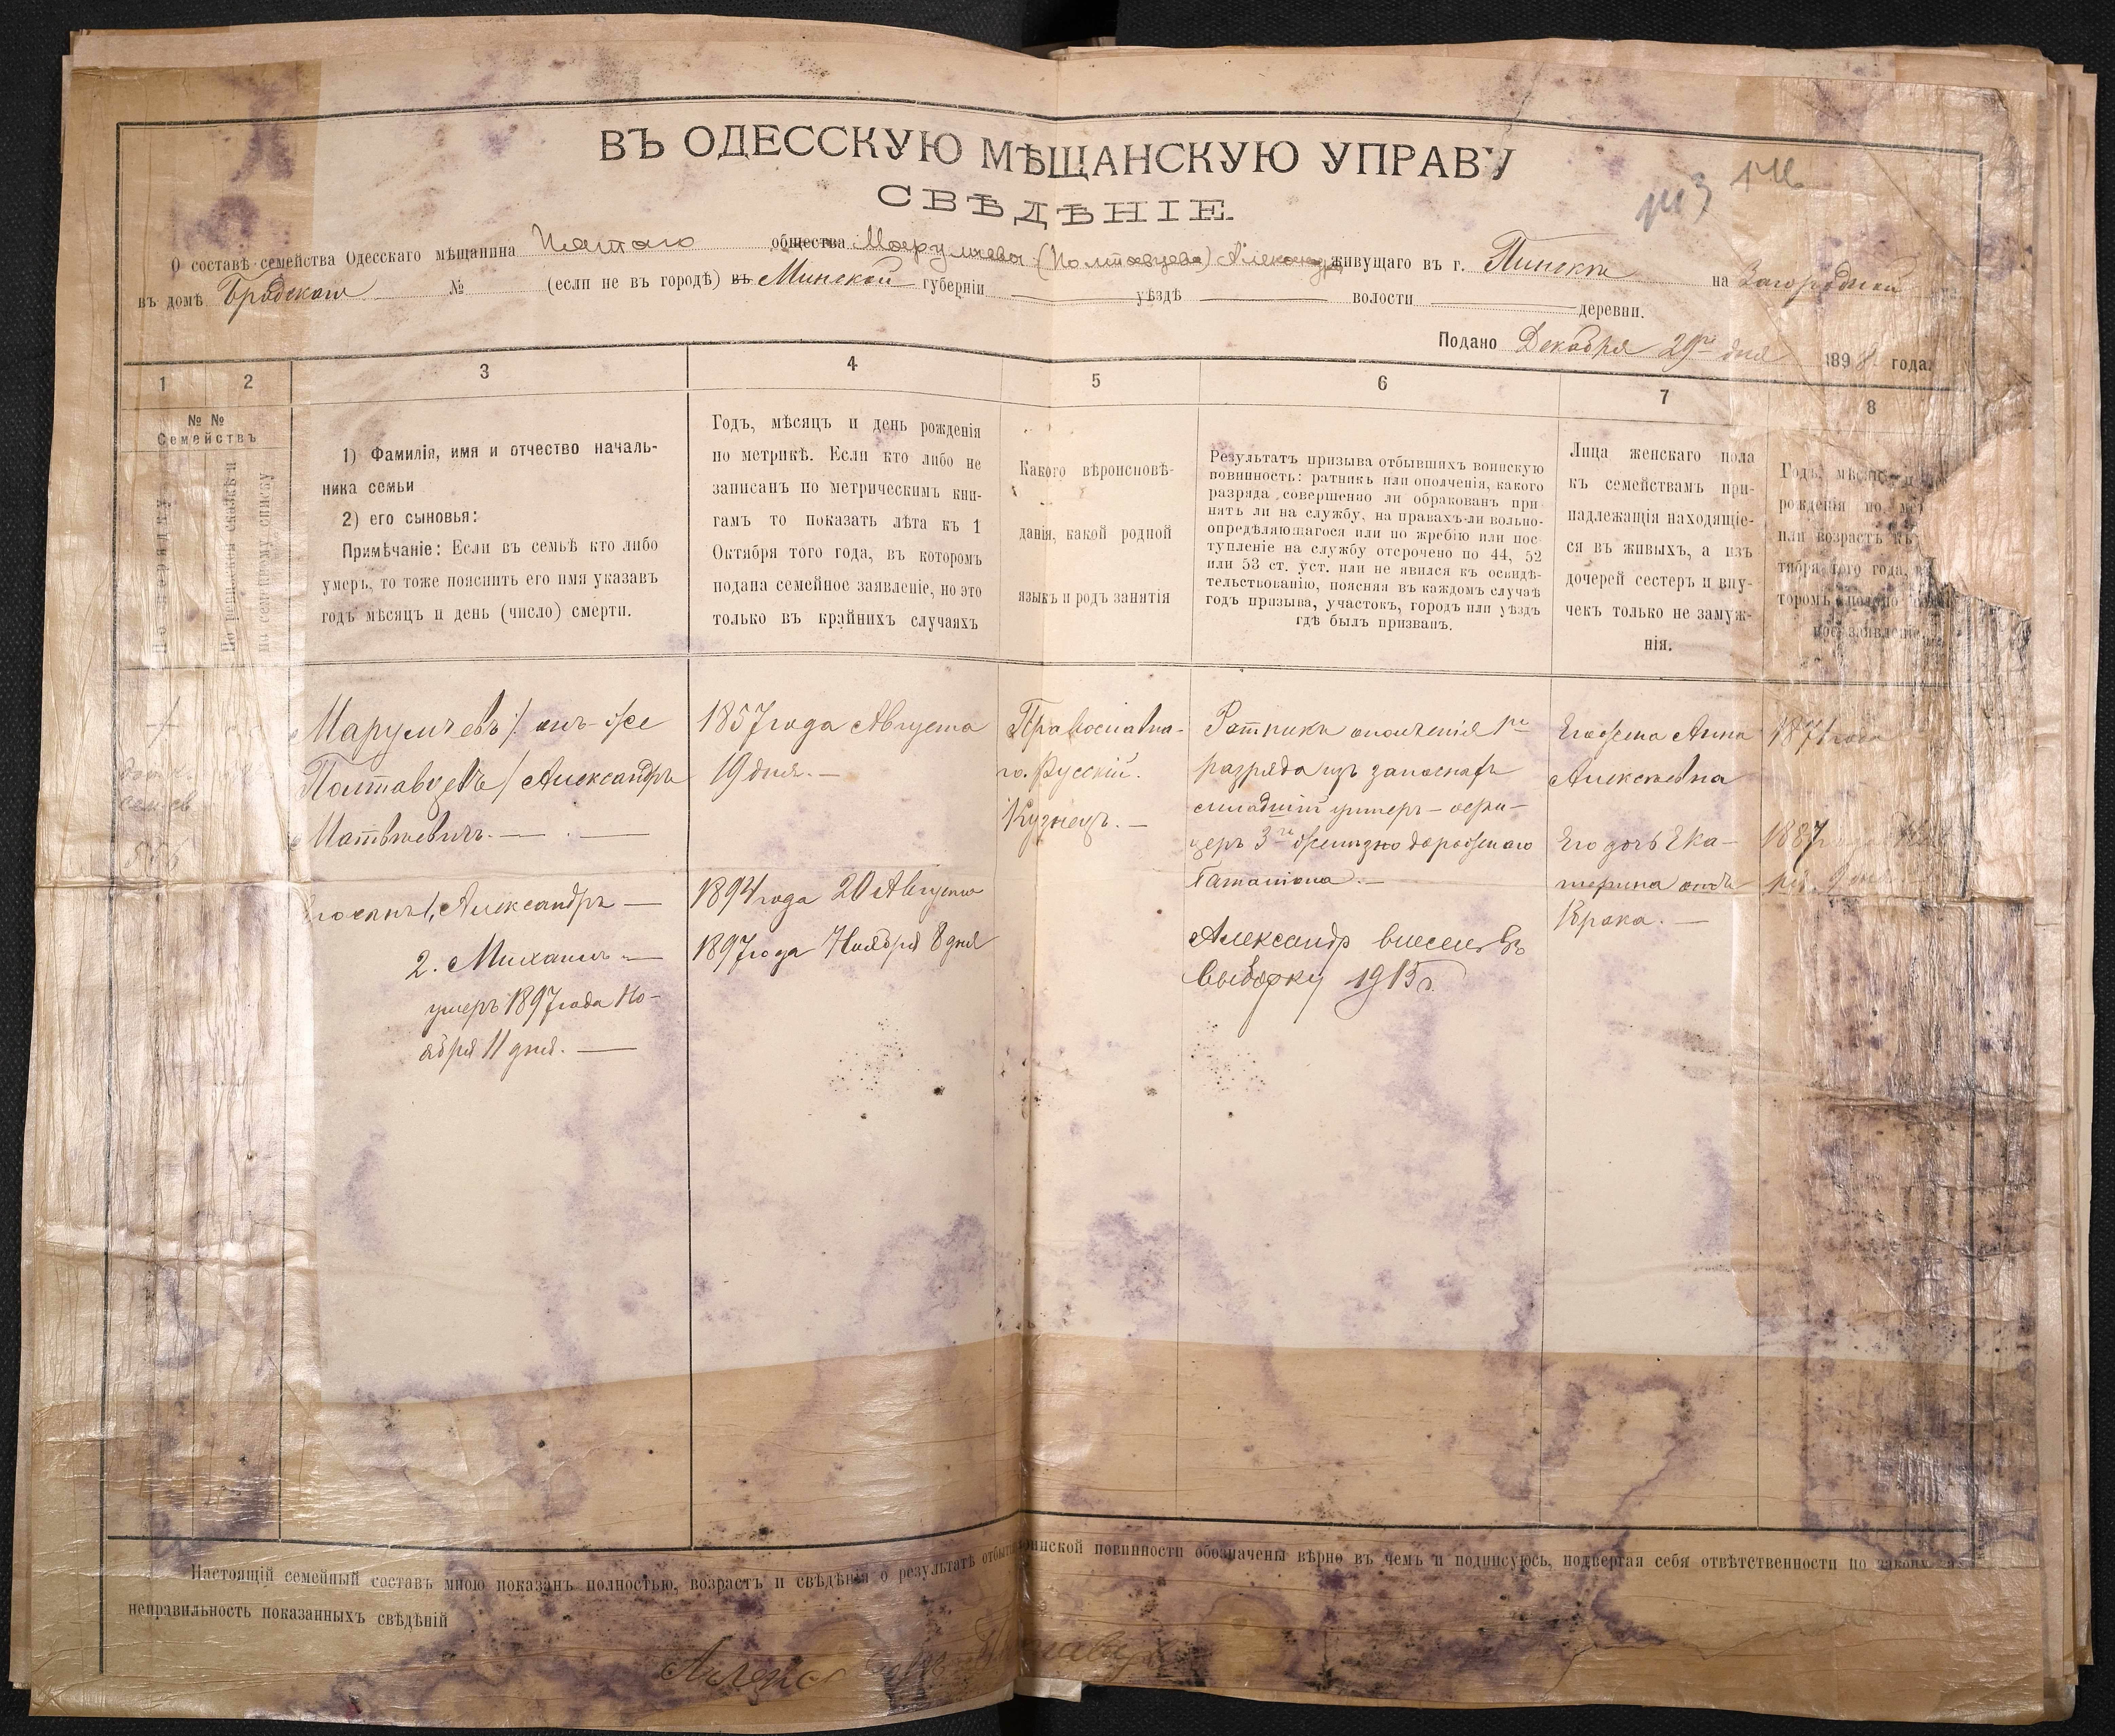 ВЪ ОДЕССКУЮ МѢЩАНСКУЮ УПРАВУ
СВѢДѢНІЕ.
О составѣ семейства Одесскаго мѣщанина Пятаго общества Марулчева (Полтавцева) Александра живущаго въ г. Пинскѣ на Загородной
въ домѣ Бродскаго № (если не въ городѣ) въ Минской губерніи уѣздѣ волости деревни.
Подано Декабря 29го дня 1898 года.
1 2 3 4 5 6 7 8
№ №
Семействъ
По порядку
По ревизской сказкѣ и
по семейному списку
1) Фамилія, имя и отчество началь-
ника семьи
2) его сыновья:
Примѣчаніе: Если въ семьѣ кто либо
умеръ, то тоже пояснить его имя указавъ
годъ мѣсяцъ и день (число) смерти.
Годъ, мѣсяцъ и день рожденія
по метрикѣ. Если кто либо не
записанъ по метрическимъ кни-
гамъ то показать лѣта къ 1
Октября того года, въ которомъ
подана семейное заявленіе, но это
только въ крайнихъ случаяхъ
Какого вѣроисповѣ-
данія, какой родной
языкъ и родъ занятія
Результатъ призыва отбывшихъ воинскую
повинность: ратникъ или ополченія, какого
разряда совершенно ли обракованъ при
нятъ ли на службу, на правахъ-ли вольно-
опредѣляющагося или по жребію или пос
тупленіе на службу отсрочено по 44, 52
или 53 ст. уст. или не явился къ освидѣ-
тельствованію, поясняя въ каждомъ случаѣ
годъ призыва, участокъ, городъ или уѣздъ
гдѣ былъ призванъ.
Лица женскаго пола
къ семействамъ при-
надлежащія находящіе-
ся въ живыхъ, а изъ
дочерей сестеръ и вну-
чекъ только не замуж-
нія.
Годъ, мѣсяцъ
рожденія по
или возрастъ къ
тября того года, въ
торомъ подано
ное заявленіе.
Марулчевъ / онъ-же
Полтавцевъ / Александръ
Матвѣевичъ. —
1857 года Августа
19 дня. —
Православна-
го. Русскій.
Кузнецъ. —
Ратникъ ополченія 1го
разряда изъ запасныхъ
младшій унтеръ-офи-
церъ 3го желѣзно дорожнаго
Баталіона. —
Его жена Анна
Алексѣевна
1871 года
Его дочь Ека-
терина отъ
брака. —
1887
Его сынъ 1, Александръ —
1894 года 20 Августа
2. Михаилъ —
1897 года Ноября 8 дня
умеръ 1897 года Но-
ября 11 дня. —
Александр внесен въ
выборку 1915 г.
Настоящій семейный составъ мною показанъ полностью, возрастъ и свѣдѣнія о результатѣ отбытія воинской повинности обозначены вѣрно въ чемъ и подписуюсь, подвергая себя отвѣтственности по закону за
неправильность показанныхъ свѣдѣній